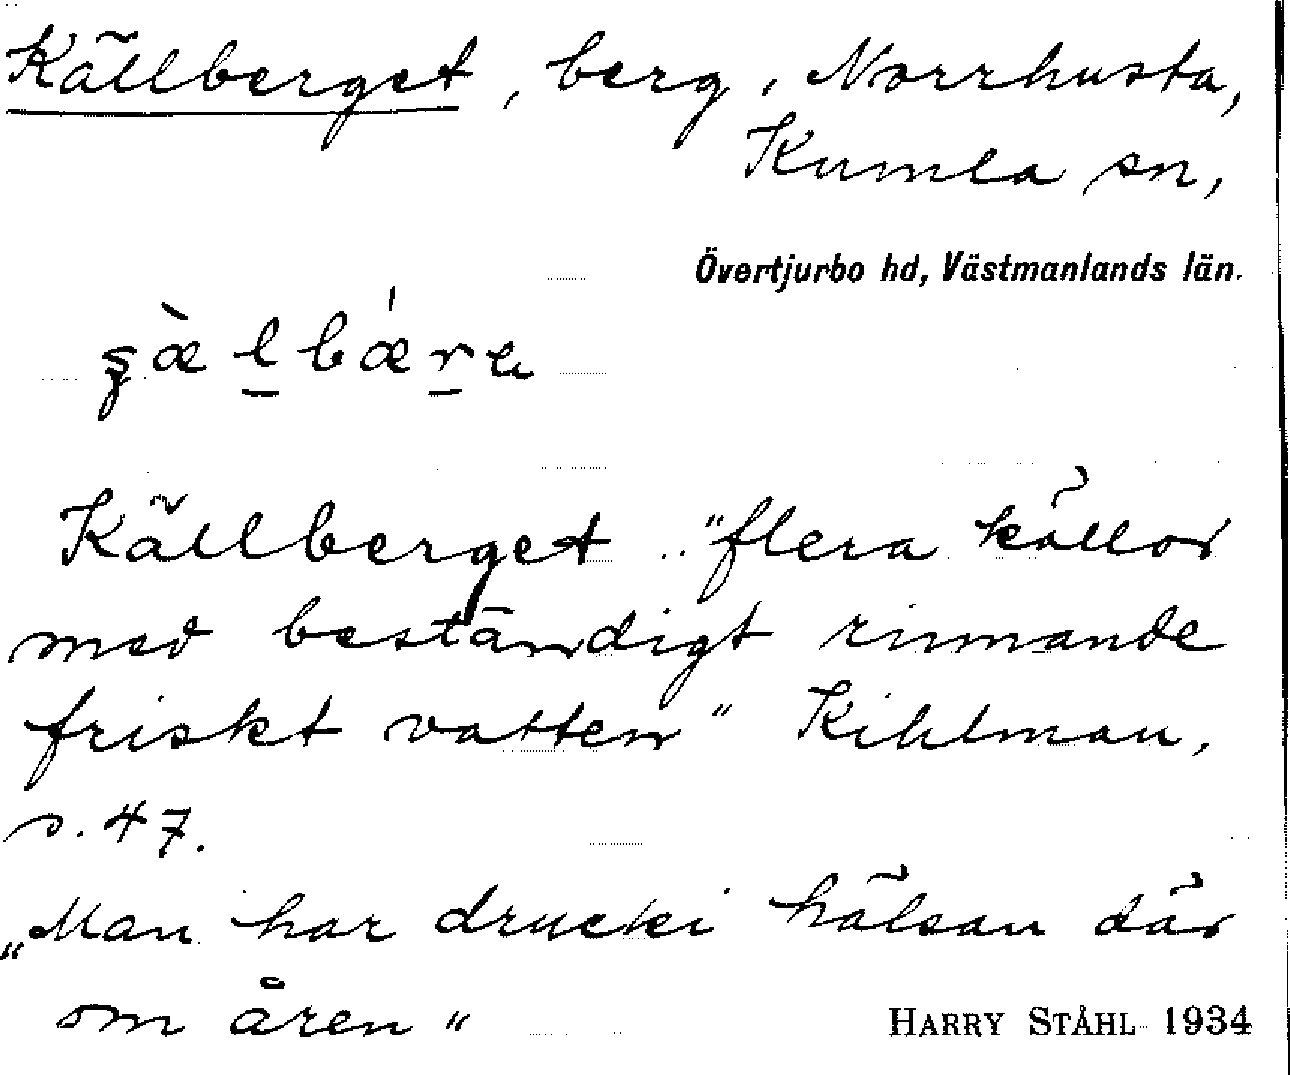 Källberget, berg, Norrhusta,
Kumla sn,
Övertjurbo hd, Västmanlands län.
Källberget "flera källor
med beständigt rinnande
friskt vatten" Kihlman,
s. 47.
„Man har drucki hälsan där
om åren"
HARRY STÅHL 1934